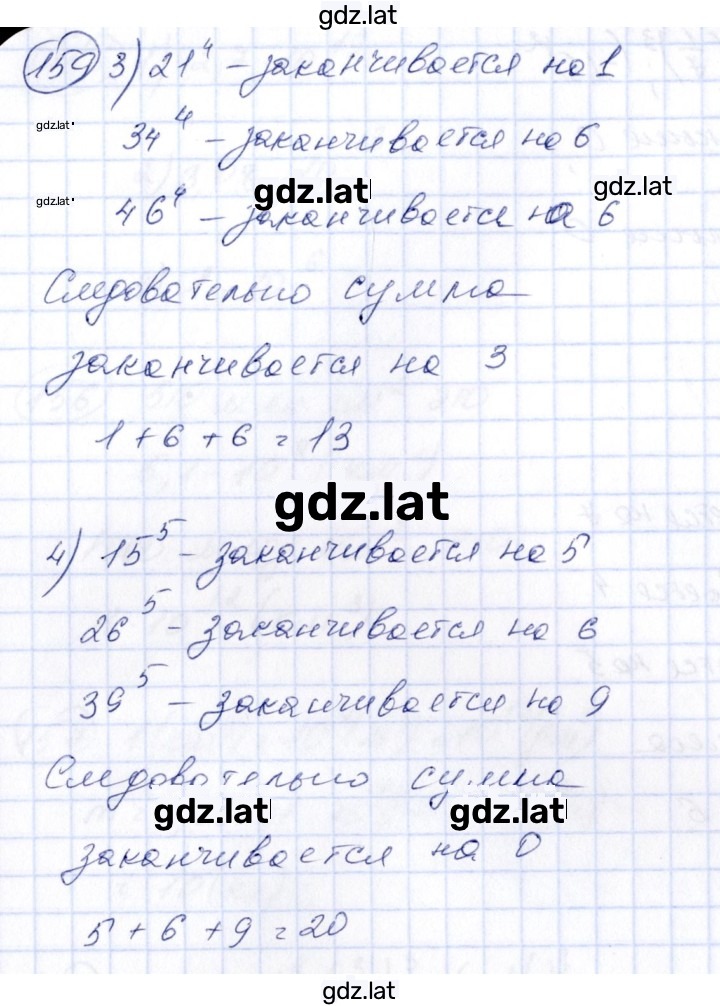 gdz.lat
159 3) 21⁴ – заканчивается на 1
gdz.lat
34⁴ – заканчивается на 6
gdz.lat gdz.lat gdz.lat
46⁴ – заканчивается на 6
Следовательно сумма
заканчивается на 3
1 + 6 + 6 = 13
gdz.lat
4) 15⁵ – заканчивается на 5
26⁵ – заканчивается на 6
39⁵ – заканчивается на 9
Следовательно сумма
gdz.lat gdz.lat
заканчивается на 0
5 + 6 + 9 = 20
gdz.lat